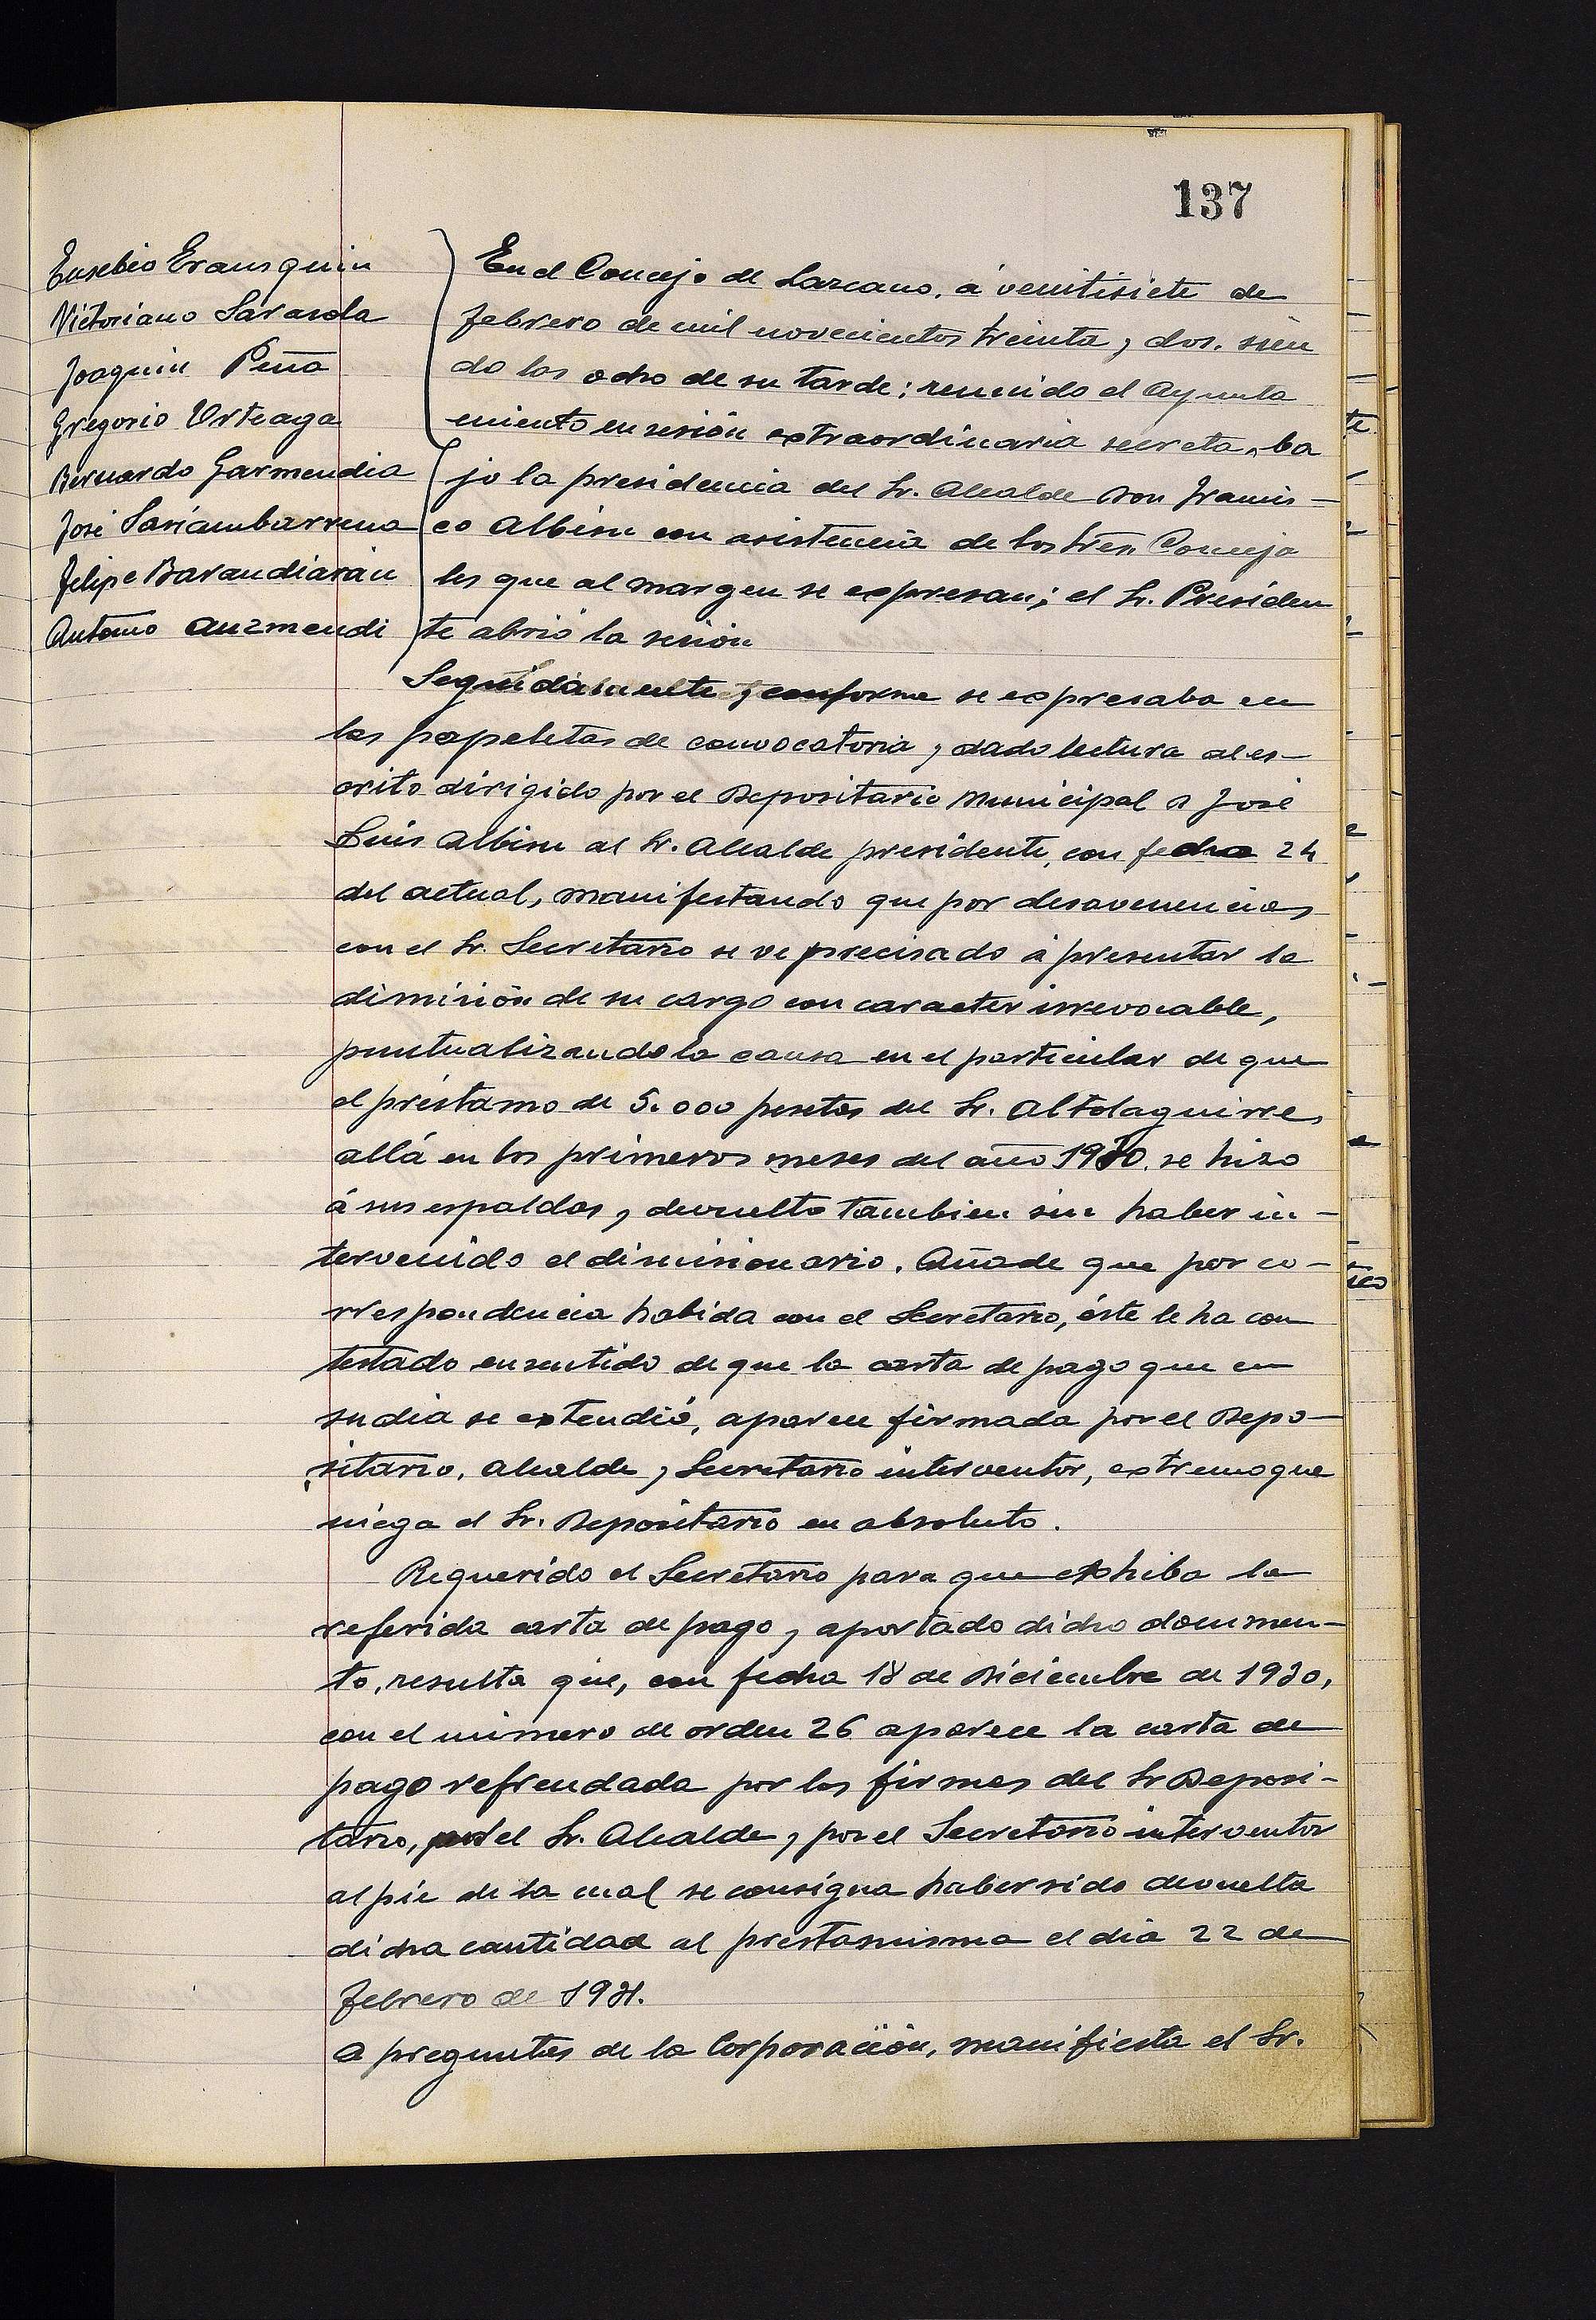 137
Eusebio Erausquin
Victoriano Sarasola
Joaquin Peña
Gregorio Urteaga
Bernardo Garmendia
José Sariambarrena
Felipe Barandiarán
Antonio Auzmendi
En el Concejo de Lazcano, á veintisiete de
febrero de mil novecientos treinta y dos, sien
do las ocho de su tarde; reunido el Ayunta
miento en sesión extraordinaria secreta, ba
jo la presidencia del Sr. Alcalde Don Francis-
co Albisu con asistencia de los Sres. Conceja
les que al margen se expresan; el Sr. Presiden
te abrió la sesión
Seguidamente y conforme se expresaba en
las papeletas de convocatoria, dado lectura al es-
crito dirigido por el Depositario Municipal D José
Luis Albisu al Sr. Alcalde presidente, con fecha 24
del actual, manifestando que por desavenencias
con el Sr. Secretario se ve precisado á presentar la
dimisión de su cargo con caracter irrevocable,
puntualizando la causa en el particular de que
el préstamo de 5.000 pesetas del Sr. Altolaguirre,
allá en los primeros meses del año 1930, se hizo
á sus espaldas, y devuelto tambien sin haber in-
tervenido el dimisionario. Añade que por co-
rrespondencia habida con el Secretario, éste le ha con
testado en sentido de que la carta de pago que en
su dia se extendió, aparece firmada por el Depo-
sitario, Alcalde y Secretario interventor, extremo que
niega el Sr. Depositario en absoluto.
Requerido el Secretario para que exhiba la
referida carta de pago, y aportado dicho documen-
to, resulta que, con fecha 18 de Diciembre de 1930,
con el número de orden 26 aparece la carta de
pago refrendada por las firmas del Sr Deposi-
tario, por el Sr. Alcalde y por el Secretario interventor
al pie de la cual se consigna haber sido devuelta
dicha cantidad al prestamisma el dia 22 de
febrero de 1931.
A preguntas de la Corporación, manifiesta el Sr.